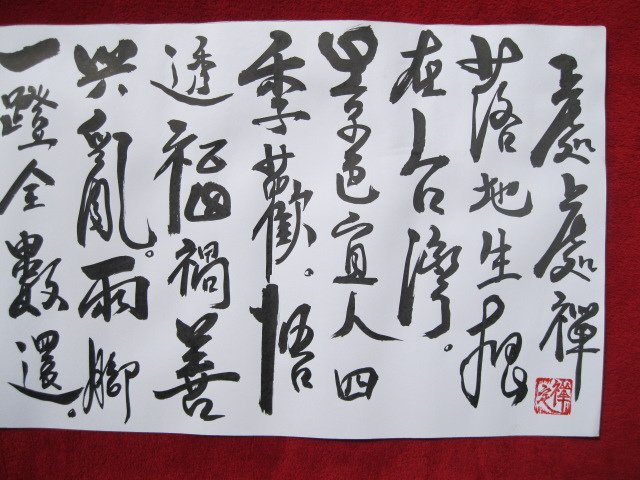 上處上處禪
落地生根
在台灣。
景色宜人四
季歡。悟
透福禍善
與亂。兩腳
一蹬全數還。